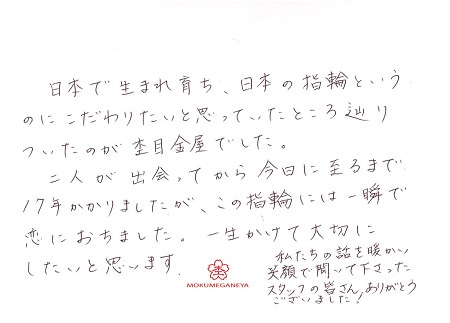 日本で生まれ育ち、日本の指輪という
のにこだわりたいと思っていたところ辿り
ついたのが杢目金屋でした。
二人が出会ってから今日に至るまで
17年かかりましたが、この指輪には一瞬で
恋におちました。一生かけて大切に
したいと思います。
私たちの話を暖かい
笑顔で聞いて下さった
スタッフの皆さんありがとう
ございました!
MOKUMEGANEYA